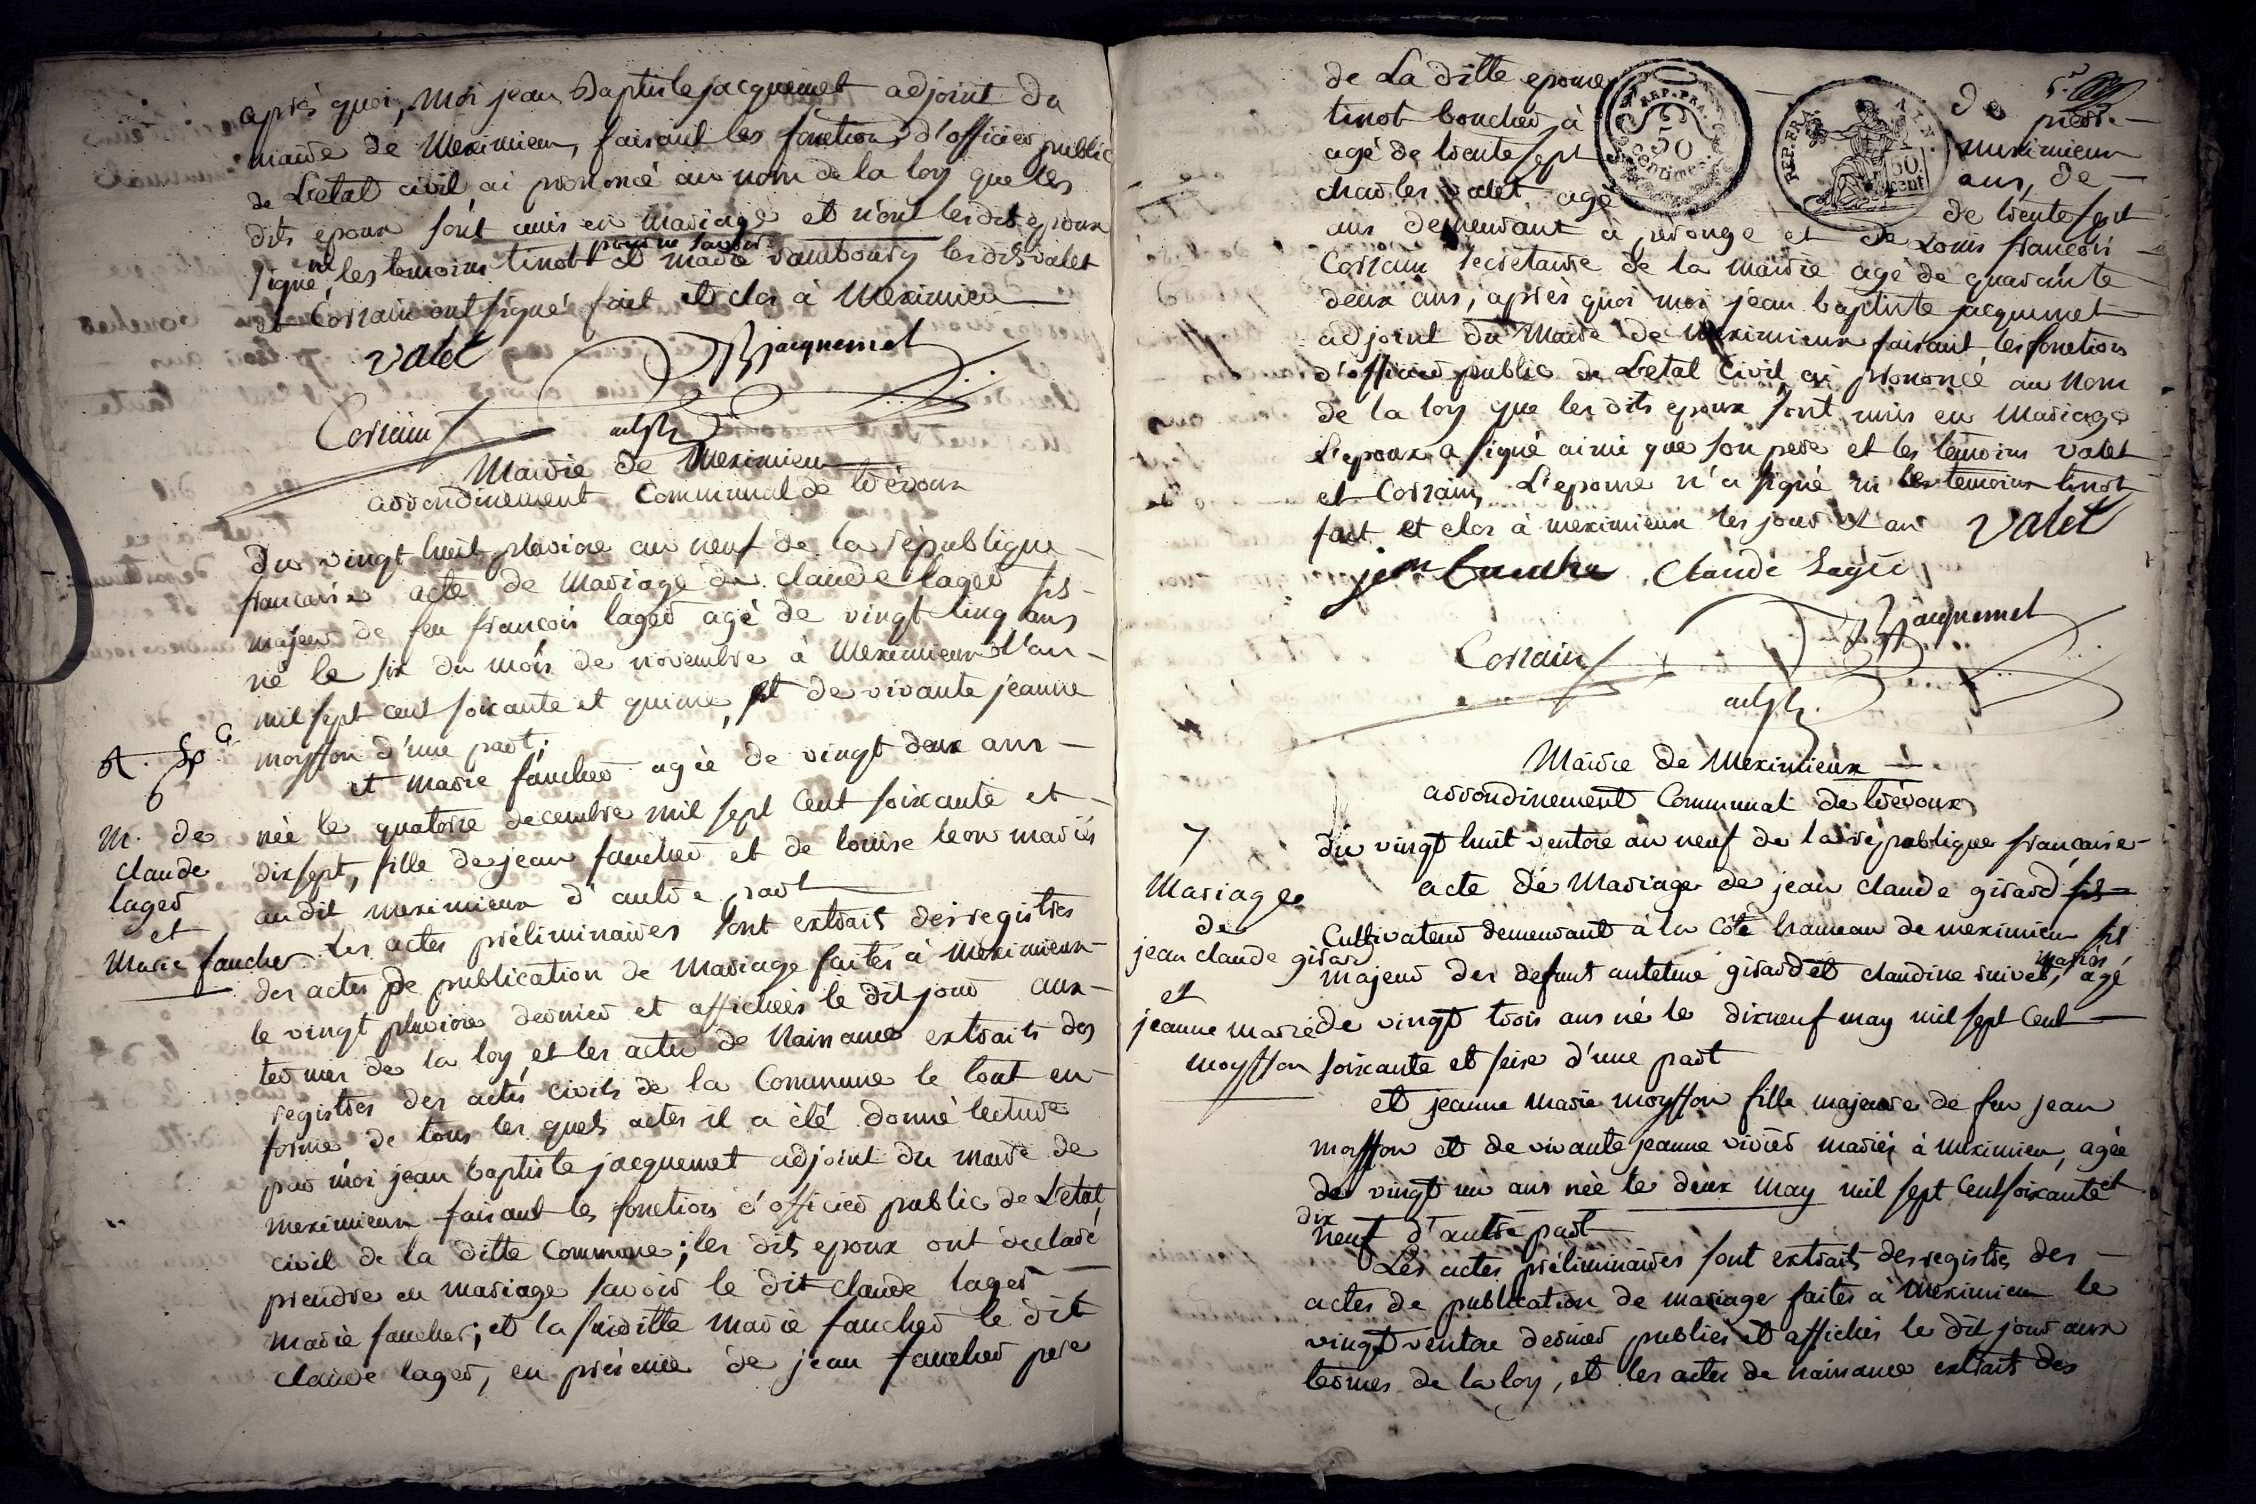 après quoi, moi jean Baptiste jacquemet adjoint du
maire de Meximieu, faisant les fonctions d'officier public
de L'etat civil ai prononcé au nom de la loy que les
dits epoux sont unis en mariage et n'ont lesdits epoux
signé ne les temoins tinot et marie lesdits valet
pour ne savoir
et Corrain ont signé fait et clos à Meximieu
valet
JBjacquemet
Corrain
adjt
Mairie de Meximieu
arrondinement Communal de trévoux
Du vingt huit pluviose an neuf de la république
francaise acte de Mariage de claude lager fils
majeur de feu francois lager agé de vingt cinq ans
né le six du mois de novembre à Meximieux l'an
mil sept cent soixante et quinze, et de vivante jeanne
moysson d'une part;
et marie faucher agée de vingt deux ans
née le quatorze decembre mil sept cent soixante et
dix sept, fille de jean faucher et de louise leon mariés
audit meximieux d'autre part
Les actes préliminaires sont extrait des registres
des actes de publication de Mariage faites à Meximieux
le vingt pluviose dernier et affichées le dit jour aux
termes de la loy et les actes de Nainance extraits des
registres des actes civils de la Commune le tout en
forme de tous les quels actes il a été donné lecture
par moi jean baptiste jacquemet adjoint du maire de
meximieux faisant les fonctions d'officier public de L'etat
civil de la ditte Commune; les dits epoux ont declaré
prendre en mariage savoir le dit claude lager
marie faucher; et la susditte marie faucher le dit
claude lager, en présence de jean faucher pere
6
M. de
claude
lager
et
Marie faucher
de La ditte epouse
de
tinot boucher à
agé de trente sept
meximieux
ans, de
charles valet agé
de trente sept
ans demeurant à perouge et de Louis francois
Corrain secretaire de la mairie agé de quarante
deux ans, après quoi moi jean baptiste jacquemet
adjoint du Maire de Meximieux faisant les fonctions
d'officier public de L'etat Civil, ai prononcé au Nom
de la loy que les dits epoux sont unis en Mariage
L'epoux a signé ainsi que son pere et les temoins valet
et Corrain, L'epouse n'a signé ni les temoins tinot
fait et clos à meximieux les jour et an
valet
jean faucher
Claude Lager
JBjacquemet
Corrain
adjt
REP. FRA.
50
centimes
REP. FRA.
AIN.
50
cent
Mairie de Meximieux
arrondinement Communal de trévoux
du vingt huit ventose an neuf de la république francaise
acte de Mariage de jean claude girard fils
Cultivateur demeurant à la Côte hameau de meximieu fils
majeur des defunt antelme girard et claudine rivet, agé
mariés
de vingt trois ans né le dixneuf may mil sept cent
soixante et seise d'une part
et jeanne marie moysson fille majeure de feu jean
moysson et de vivante jeanne vivier mariés à meximieu, agée
de vingt un ans née le deux may mil sept cent soixante et
dix
neuf d'autre part
Les actes préliminaires sont extraits des registres des
actes de publication de mariage faites à Meximieu le
vingt ventose dernier publiés et affichés le dit jour aux
termes de la loy, et les actes de nainance extraits des
7
Mariage
de
jean claude girard
et
jeanne marie
moysson